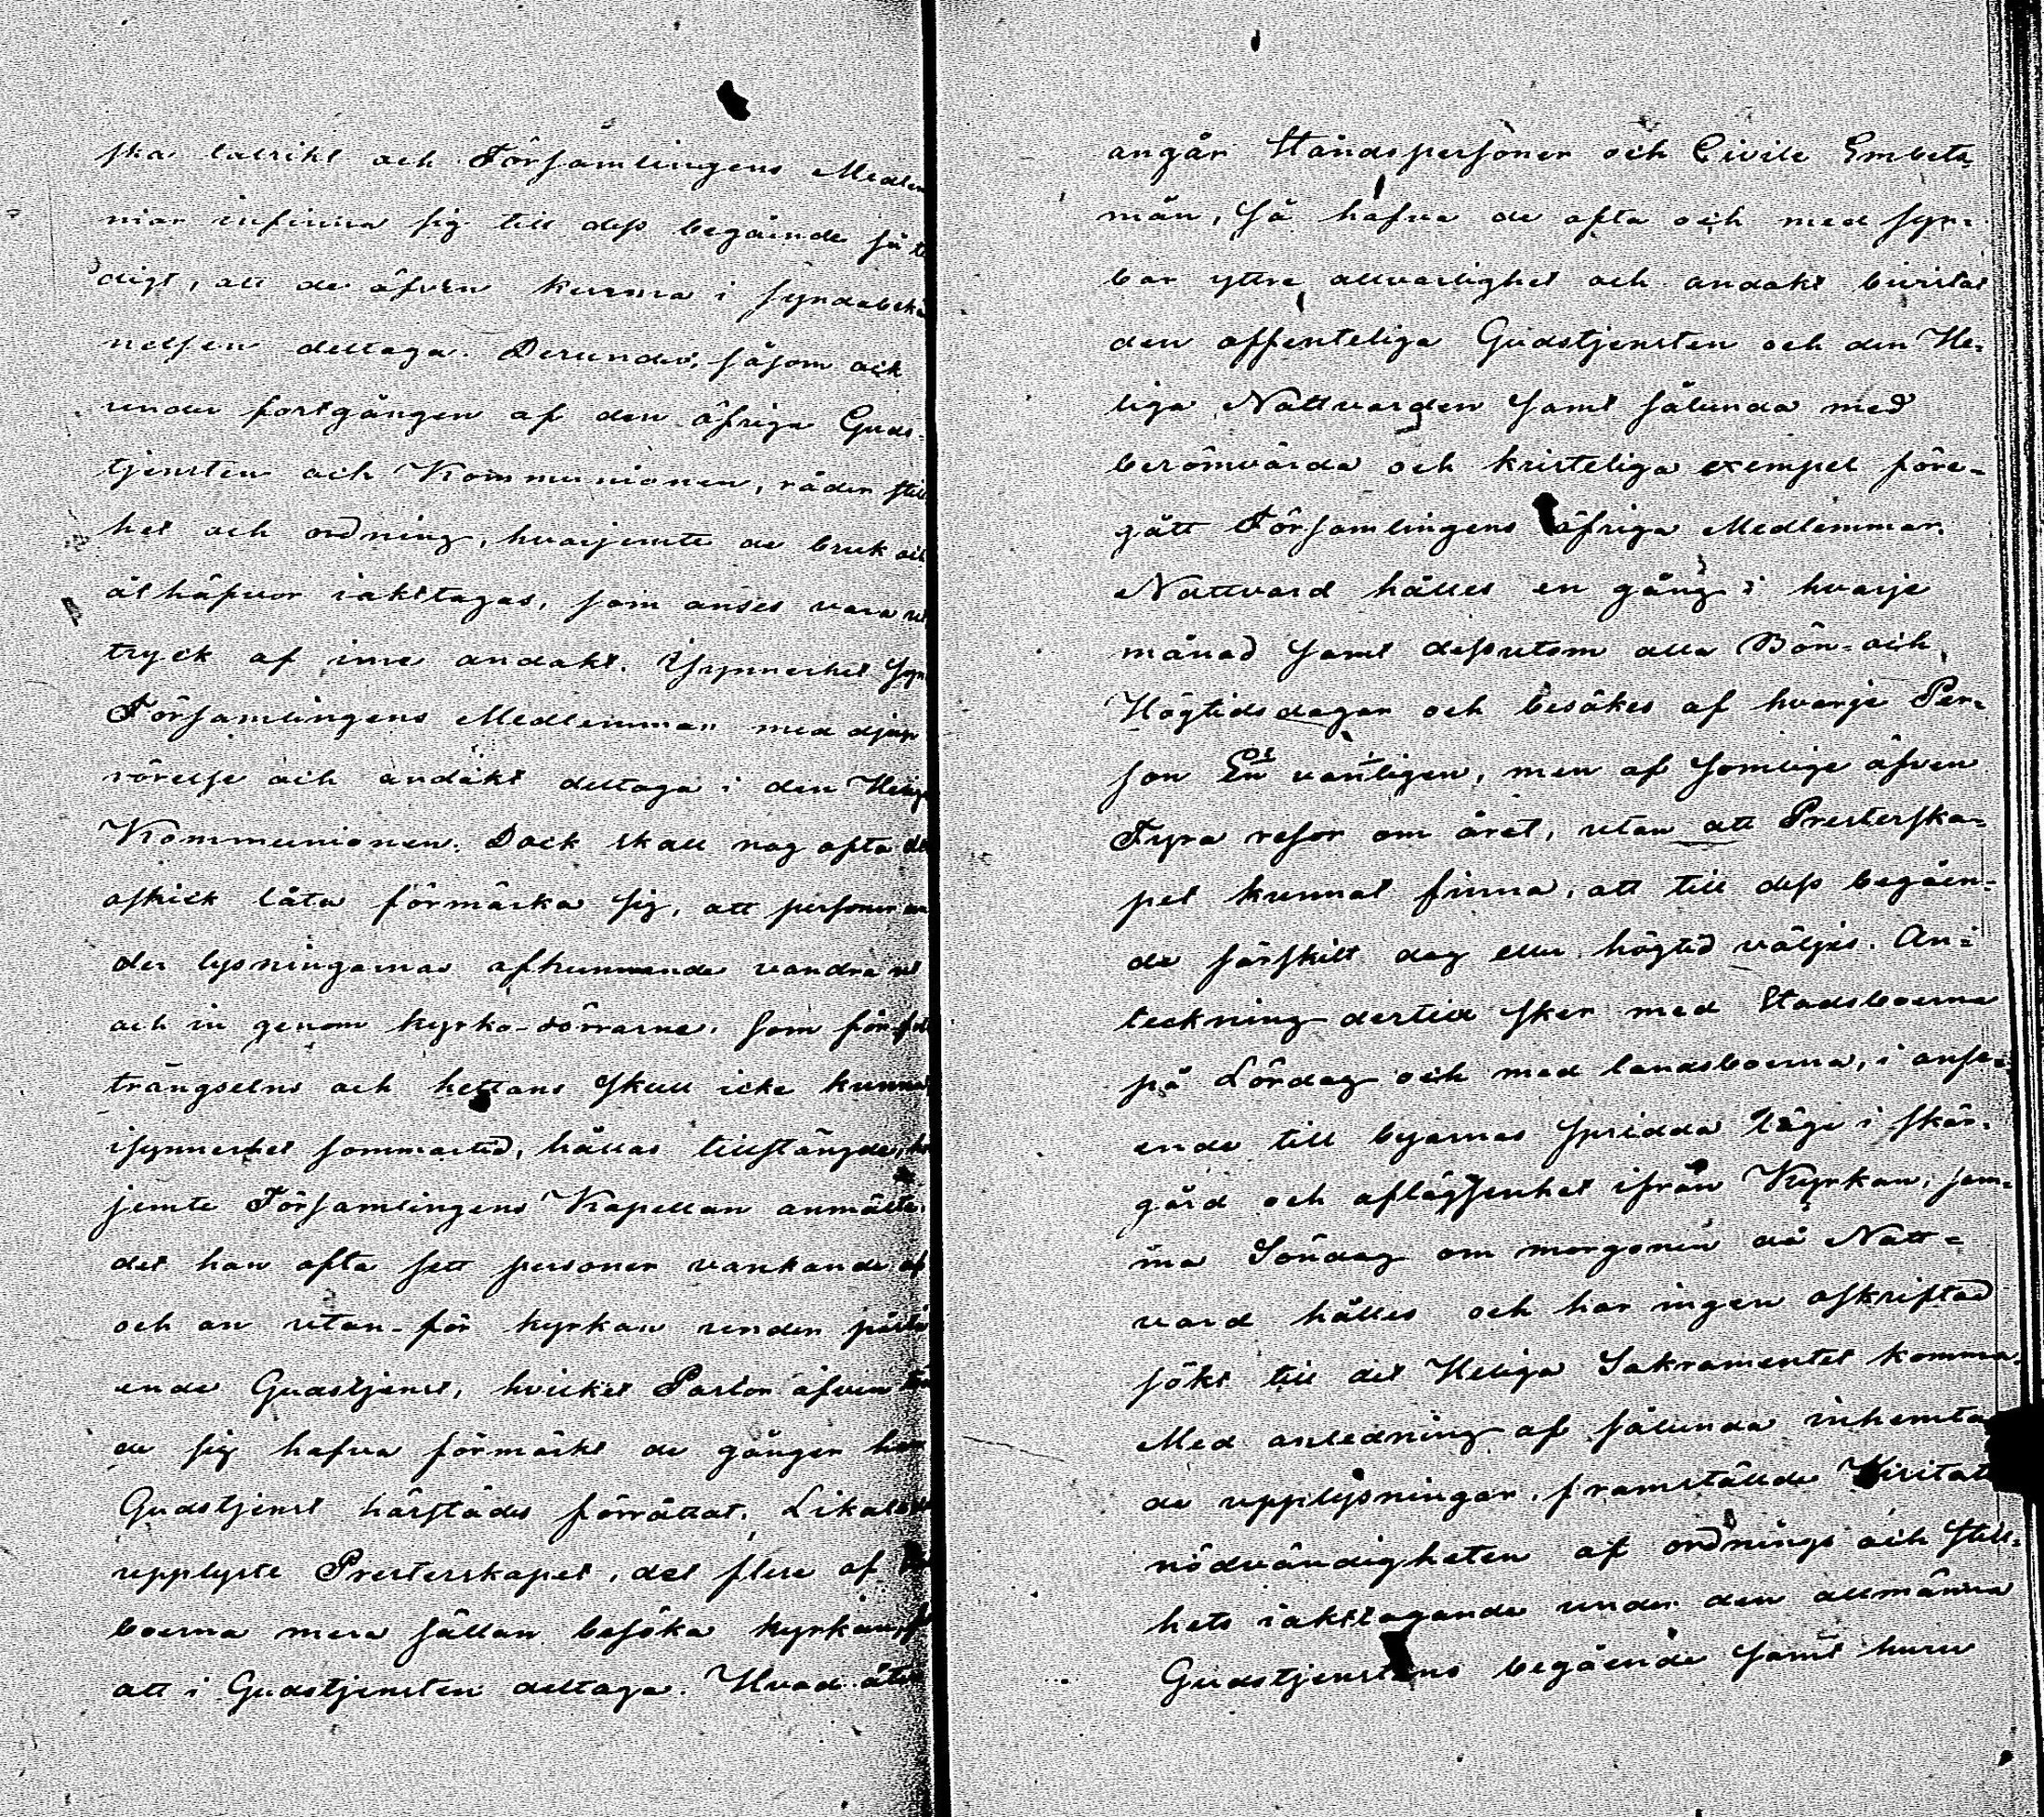 ska talrikt och Församlingens Medlem
mar infinna sig till dess begående så ti
digt, att de äfven kunna i syndabekä
nelsen deltaga. Derunder, såsom ock
under fortgången af den öfriga Guds-
tjensten och Kommunionen, råder still
het och ordning, hvarjemte de bruk och
åthäfvor iakttagas, som anses vara ut
tryck af inre andakt. Isynnerhet syn
Församlingens Medlemmar med djup
rörelse och andakt deltaga i den Helig
Kommunionen. Dock skall nog ofta det
oskick låta förmärka sig, att personer un
der lysningarnas afkunnande vandra ut
och in genom kyrko-dörrarne, som för
trängselns och hettans skull icke kunna
isynnerhet sommartid, hållas tillstängde, hvar
jemte Församlingens Kapellan anmälte,
det han ofta sett personer vankande af
och an utan-för kyrkan under påstå
ende Gudstjenst, hvilket Pastor äfven
de sig hafva förmärkt de gånger han
Gudstjenst härstädes förrättat. Likaledes
upplyste Presterskapet, det flere af
boerna mera sällan besöka kyrkan, f
att i Gudstjensten deltaga. Hvad åter
angår Ståndspersoner och Civile Embets-
män, så hafva de ofta och med syn-
bar yttre allvarlighet och andakt bivistat
den offenteliga Gudstjensten och den He-
liga Nattvarden samt sålunda med
berömvärda och kristeliga exempel före-
gått Församlingens öfriga Medlemmar.
Nattvard hålles en gång i hvarje
månad samt dessutom alla Bön- och
Högtidsdagar och besökes af hvarje Per-
son En vanligen, men af somlige äfven
Fyra resor om året, utan att Presterska-
pet kunnat finna, att till dess begåen-
de särskilt dag eller högtid väljes. An-
teckning dertill sker med Stadsboerna
på Lördag och med landsboerna, i anse-
ende till byarnas spridda läge i skär-
gård och aflägsenhet ifrån Kyrkan, sam-
ma Söndag om morgonen då Natt-
vard hålles och har ingen oskriftad
sökt till det Heliga Sakramentet komma.
Med anledning af sålunda inhemta
de upplysningar, framställde Visitator
nödvändigheten af ordnings och still-
hets iakttagande under den allmänna
Gudstjenstens begående samt huru